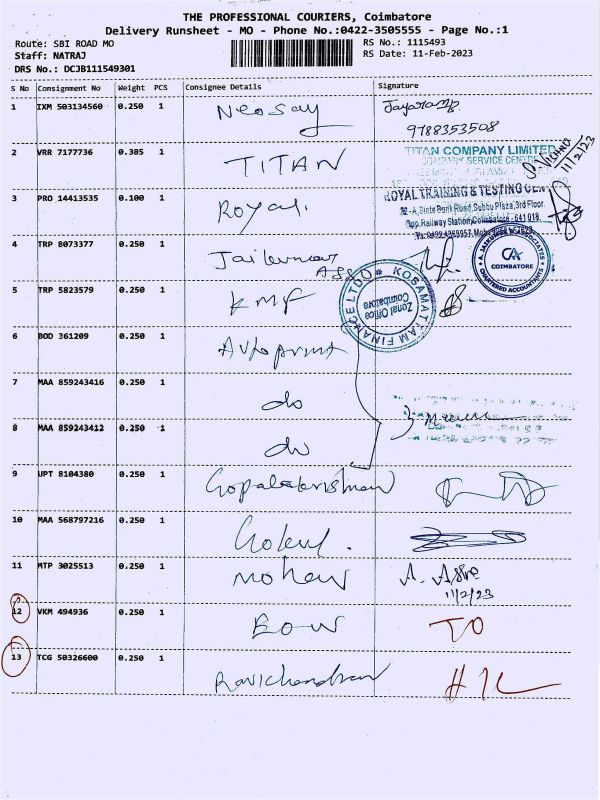 THE PROFESSIONAL COURIERS, Coimbatore
Delivery Runsheet - MO - Phone No.:0422-3505555 - Page No.:1
Route: SBI ROAD MO RS No.: 1115493
Staff: NATRAJ RS Date: 11-Feb-2023
DRS No.: DCJB111549301
S No Consignment No Weight PCS Consignee Details Signature
1 IXM 503134560 0.250 1 Neosay Jayaram
9788353508
2 VRR 7177736 0.385 1 TITAN TITAN COMPANY LIMITED
COMPANY SERVICE CENTRE
11/2/23
3 PRO 14413535 0.100 1 Royal. ROYAL TRAINING & TESTING CEN
-A, State Bank Road, Subbu Plaza, 3rd Floor
Opp. Railway Station, Coimbatore - 641 018.
4 TRP 8073377 0.250 1 CHARTERED ACCOUNTANTS
CA
COIMBATORE
5 TRP 5823579 0.250 1 KMF KOSAMATTAM FINANCE LTD
Zonal Office
Coimbatore
6 BOD 361209 0.250 1 Autoprint
7 MAA 859243416 0.250 1 do
8 MAA 859243412 0.250 1 do
9 UPT 8104380 0.250 1 Gopalakrishnan
10 MAA 568797216 0.250 1 Gokul.
11 MTP 3025513 0.250 1 Mohan A.
11/2/23
12 VKM 494936 0.250 1 BOW TO
13 TCG 50326600 0.250 1 Ravichandran